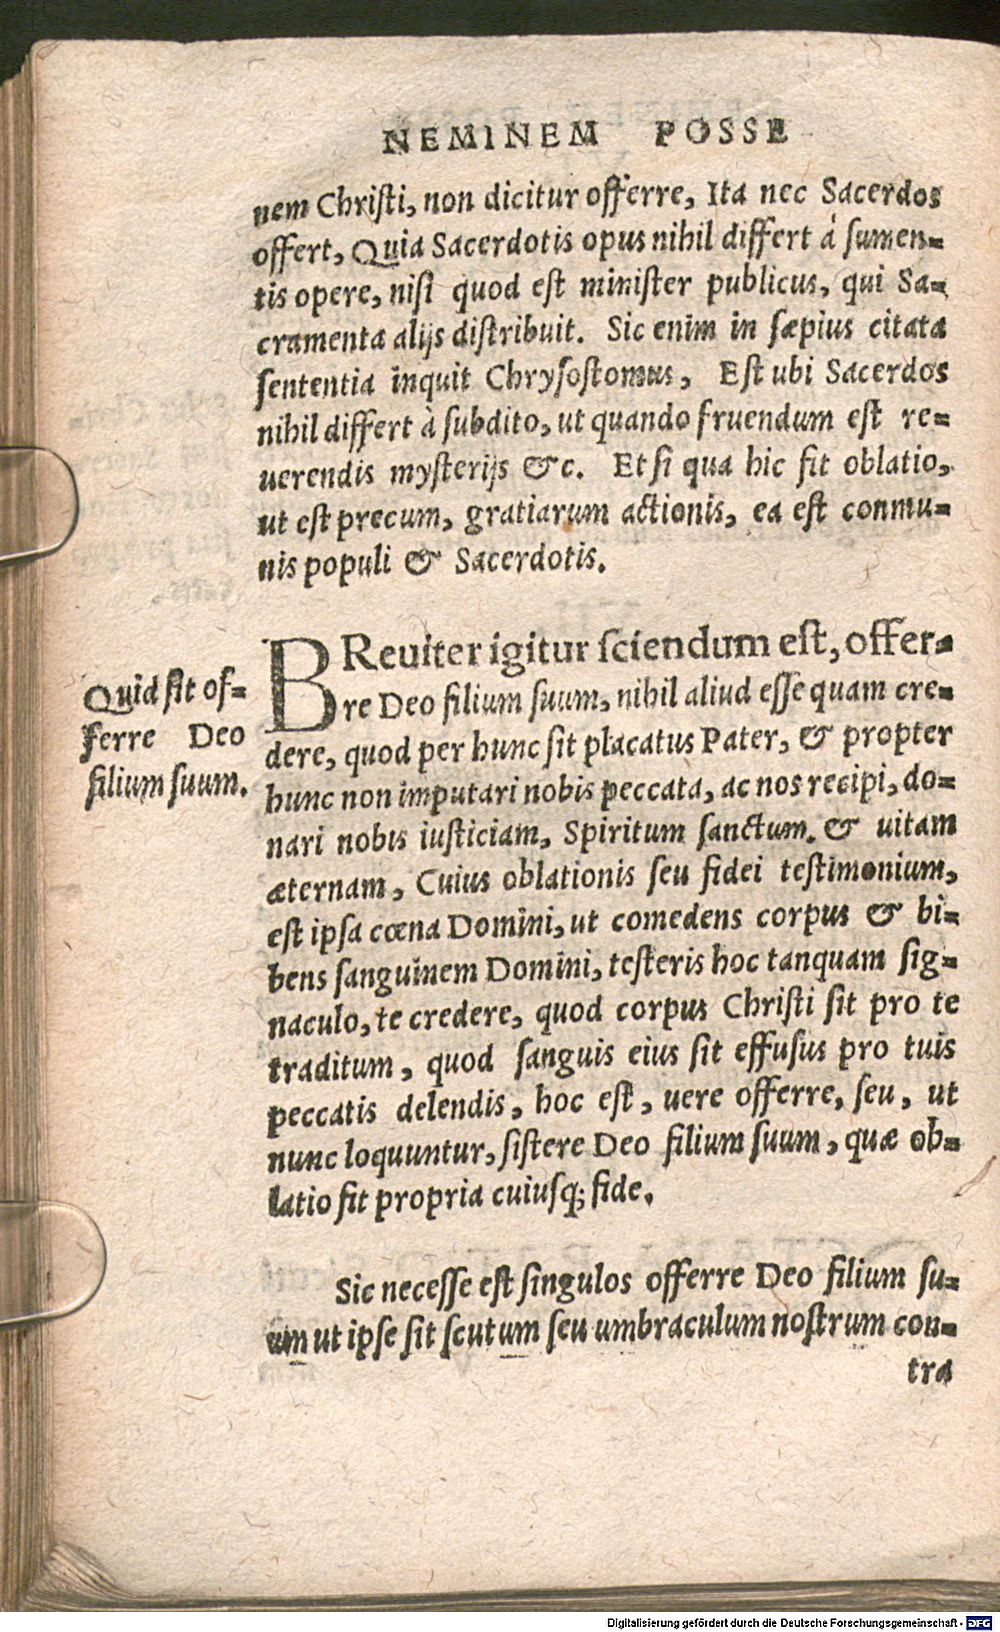 NEMINEM POSSE
nem Chriſti, non dicitur offerre, Ita nec Sacerdos
offert, Quia Sacerdotis opus nihil differt à ſumen=
tis opere, niſi quod eſt miniſter publicus, qui Sa=
cramenta alijs diſtribuit. Sic enim in ſæpius citata
ſententia inquit Chryſoſtomus, Eſt ubi Sacerdos
nihil differt à ſubdito, ut quando fruendum eſt re=
uerendis myſterijs &c. Et ſi qua hic fit oblatio,
ut eſt precum, gratiarum actionis, ea eſt conmu=
nis populi & Sacerdotis.
Quid ſit of=
ferre Deo
filium ſuum.
BReuiter igitur ſciendum eſt, offer=
re Deo filium ſuum, nihil aliud eſſe quam cre=
dere, quod per hunc ſit placatus Pater, & propter
hunc non imputari nobis peccata, ac nos recipi, do=
nari nobis iuſticiam, Spiritum ſanctum, & uitam
æternam, Cuius oblationis ſeu fidei teſtimonium,
eſt ipſa cœna Domini, ut comedens corpus & bi=
bens ſanguinem Domini, teſteris hoc tanquam ſig=
naculo, te credere, quod corpus Chriſti ſit pro te
traditum, quod ſanguis eius ſit effuſus pro tuis
peccatis delendis, hoc eſt, uere offerre, ſeu, ut
nunc loquuntur, ſiſtere Deo filium ſuum, quæ ob=
latio fit propria cuiusq; fide.
Sic neceſſe eſt ſingulos offerre Deo filium ſu=
um ut ipſe ſit ſcutum ſeu umbraculum noſtrum con=
tra
Digitalisierung gefördert durch die Deutsche Forschungsgemeinschaft - DFG